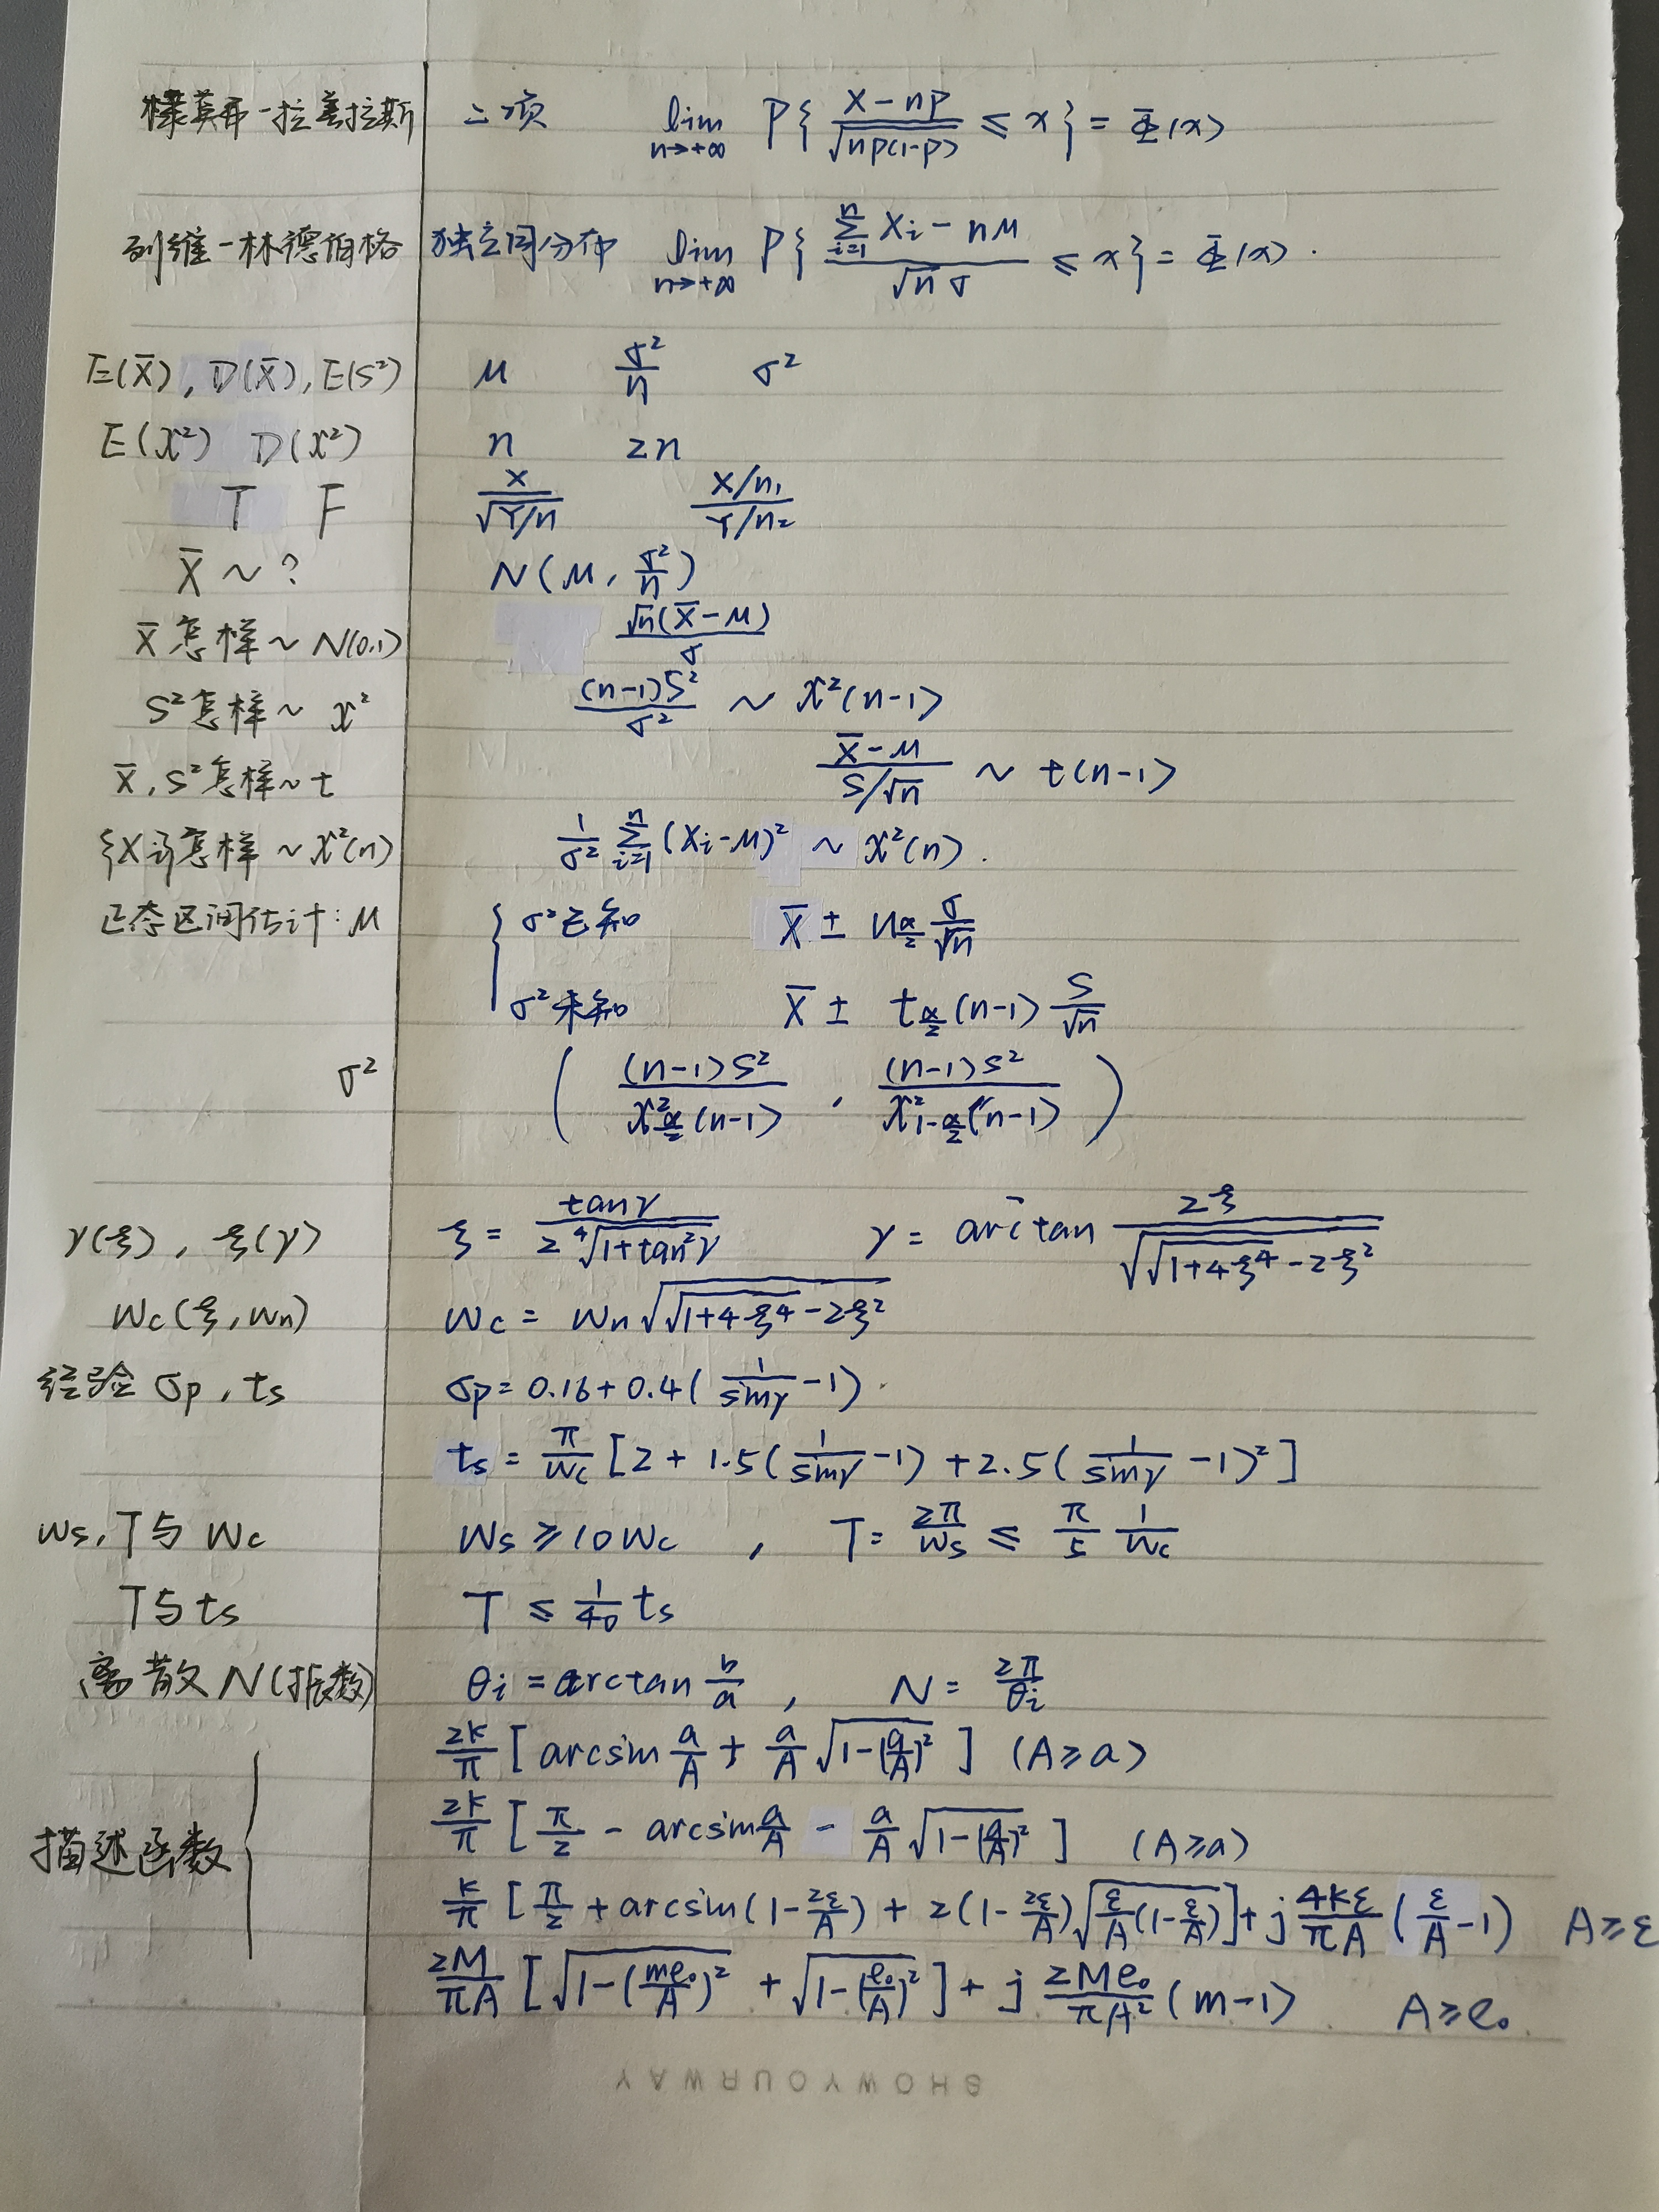 棣莫弗-拉普拉斯 二项 lim n→+∞ P{ (X-np)/√(np(1-p)) ≤ x } = Φ(x)
列维-林德伯格 独立同分布 lim n→+∞ P{ (∑_{i=1}^{n} Xi - nμ)/(√n σ) ≤ x } = Φ(x).
E(X̄), D(X̄), E(S²) μ σ²/n σ²
E(χ²) D(χ²) n 2n
T F X/√(Y/n) (X/n₁)/(Y/n₂)
X̄ ~ ? N(μ, σ²/n)
X̄ 怎样 ~ N(0,1) √n(X̄-μ)/σ
S² 怎样 ~ χ² (n-1)S²/σ² ~ χ²(n-1)
X̄, S² 怎样 ~ t (X̄-μ)/(S/√n) ~ t(n-1)
{Xi} 怎样 ~ χ²(n) 1/σ² ∑_{i=1}^{n} (Xi-μ)² ~ χ²(n).
正态区间估计: μ { σ²已知 X̄ ± u_{α/2} σ/√n
σ²未知 X̄ ± t_{α/2}(n-1) S/√n
σ² ( (n-1)S²/χ²_{α/2}(n-1) , (n-1)S²/χ²_{1-α/2}(n-1) )
γ(ξ), ξ(γ) ξ = tanγ/(2 ⁴√(1+tan²γ)) γ = arctan 2ξ/√(√(1+4ξ⁴)-2ξ²)
Wc(ξ, Wn) Wc = Wn √(√(1+4ξ⁴)-2ξ²)
经验 σp, ts σp = 0.16+0.4(1/sinγ -1).
ts = π/Wc [2 + 1.5(1/sinγ -1) + 2.5(1/sinγ -1)²]
Ws, T与 Wc Ws ≥ 10Wc , T = 2π/Ws ≤ π/5 1/Wc
T与ts T ≤ 1/40 ts
离散N(振数) θi = arctan b/a , N = 2π/θi
2k/π [arcsin a/A + a/A √(1-(a/A)²)] (A≥a)
描述函数 { 2k/π [π/2 - arcsin a/A - a/A √(1-(a/A)²)] (A≥a)
k/π [π/2 + arcsin(1-2ε/A) + 2(1-2ε/A)√(ε/A(1-ε/A))] + j 4kε/πA (ε/A -1) A≥ε
2M/πA [√(1-(me₀/A)²) + √(1-(e₀/A)²)] + j 2Me₀/πA² (m-1) A≥e₀
SHOWYOURWAY